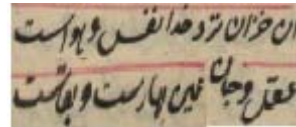 ان خزان نزد خدا نفس و هواست
عقل و جان عین بهارست و بقاست